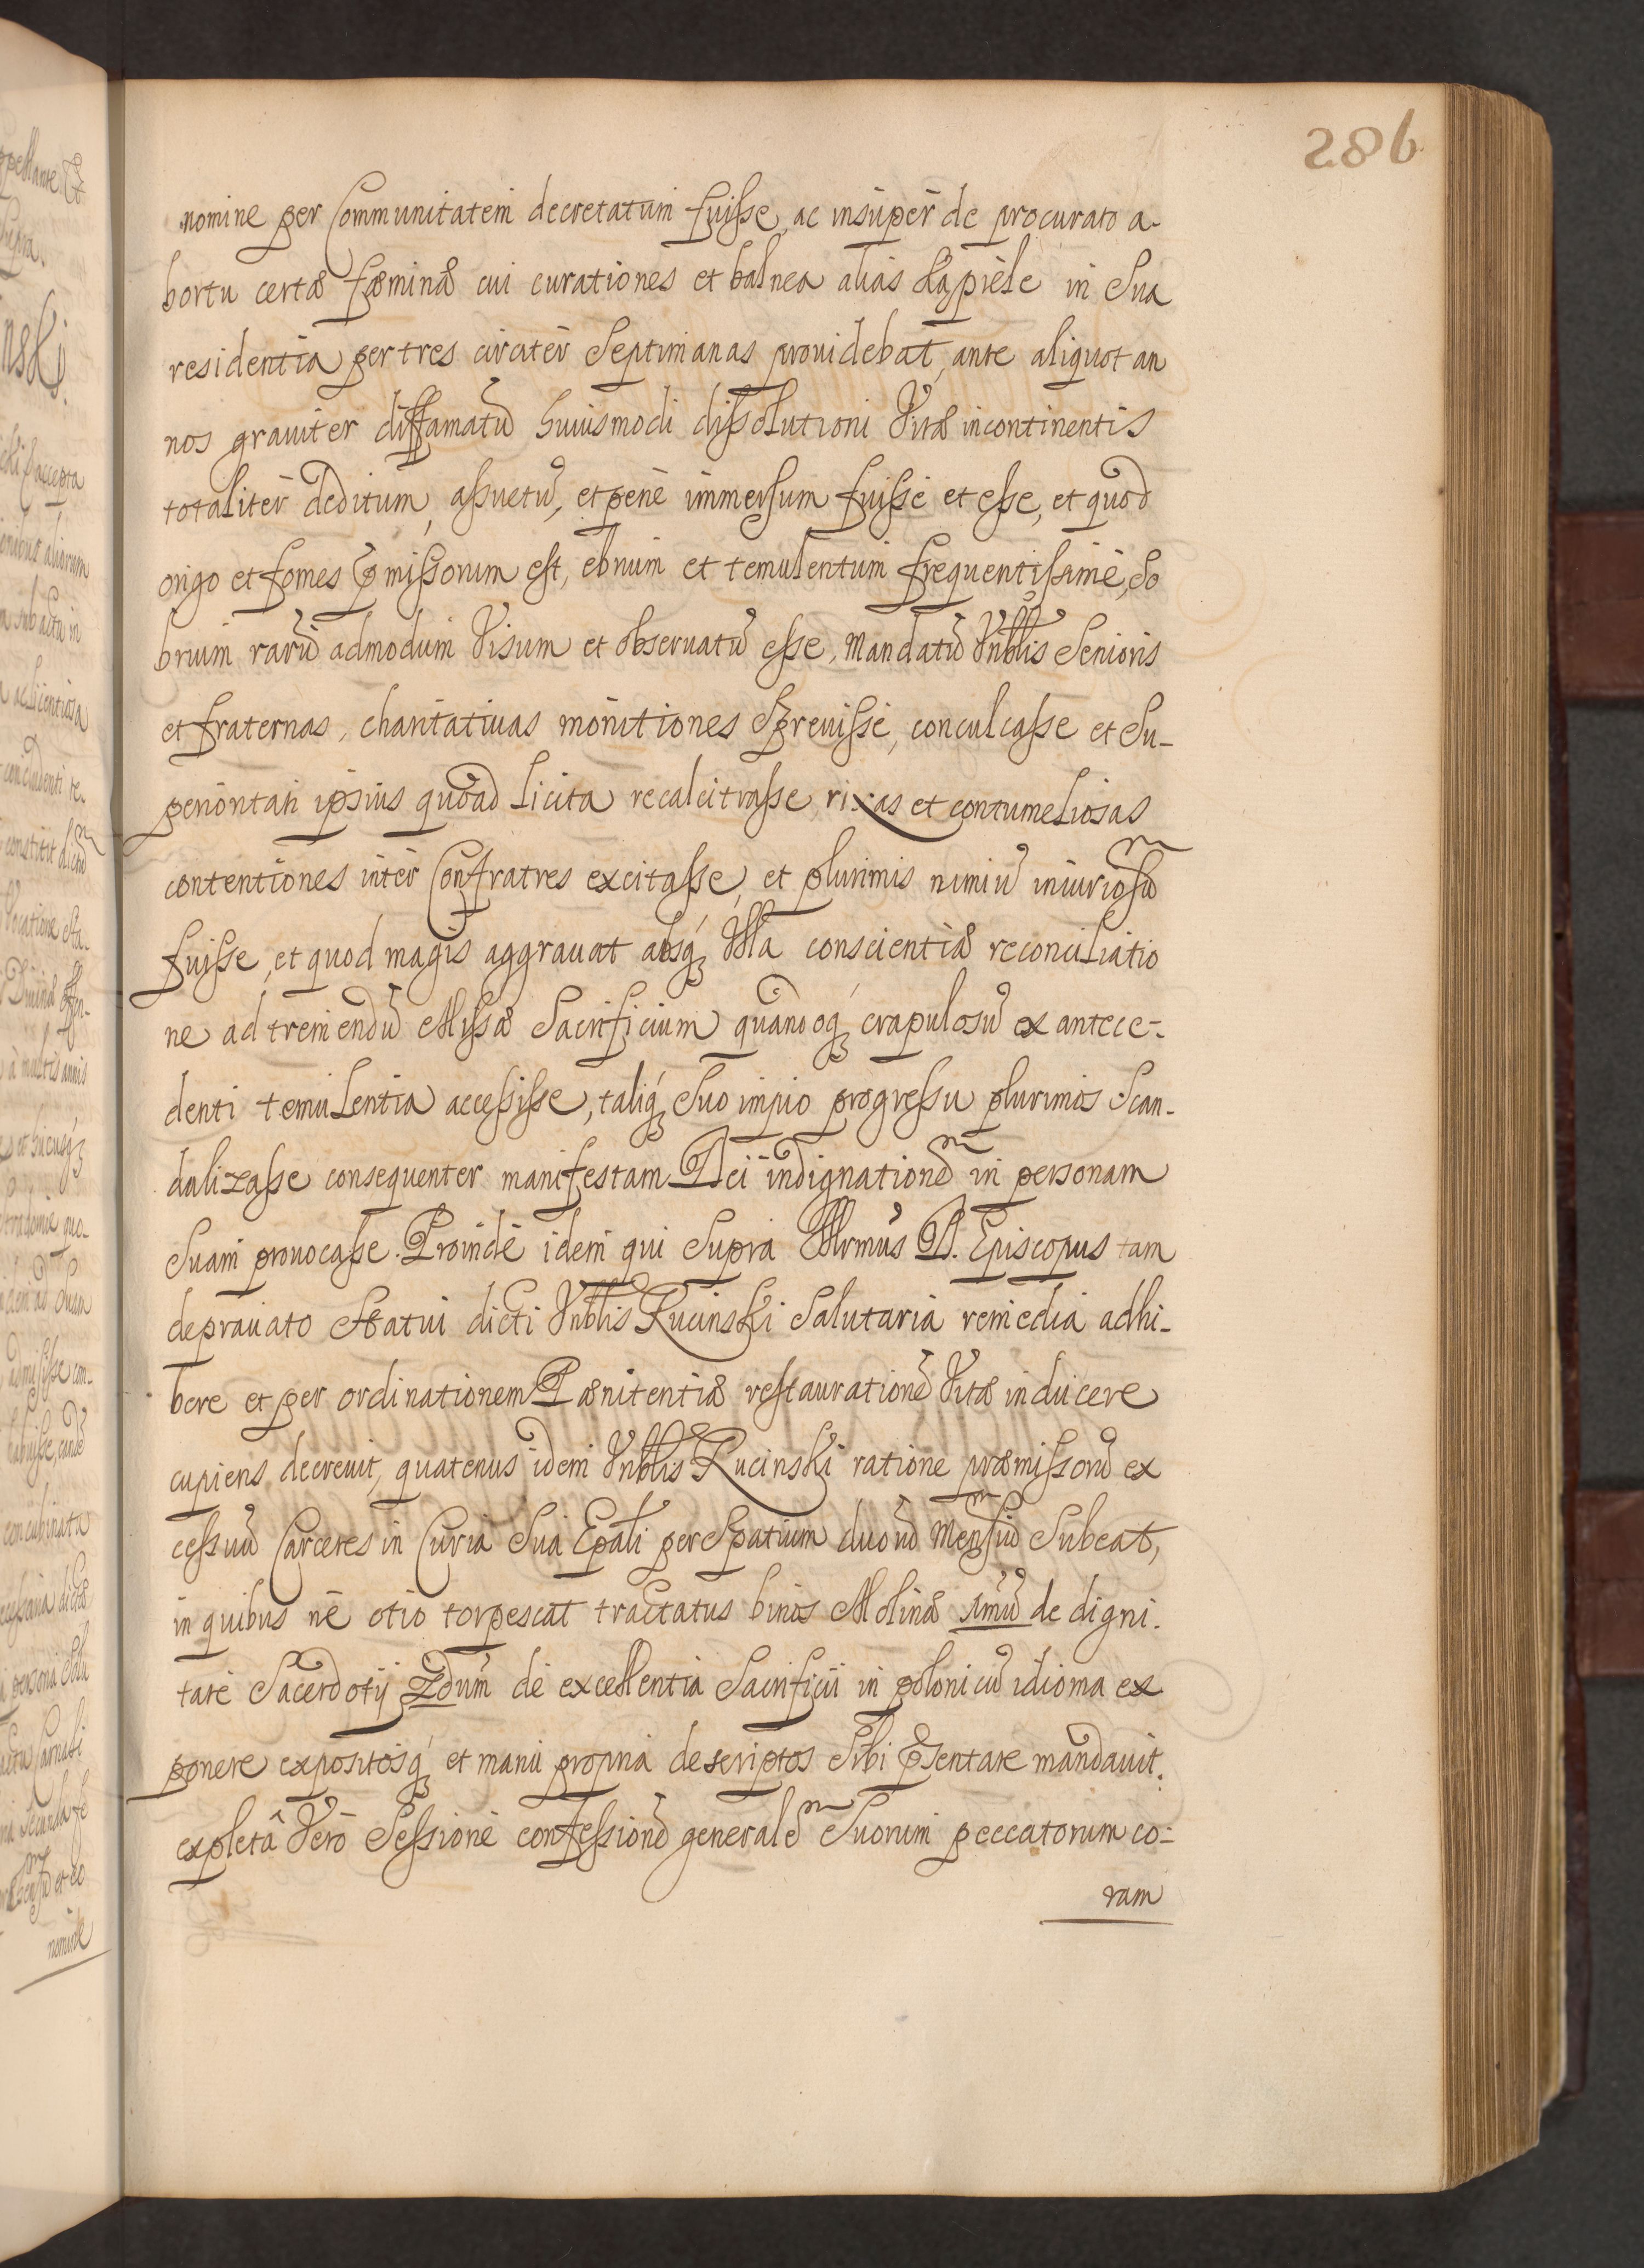 286
nomine per Communitatem decretatum fuisse, ac insuper de procurato a-
bortu certæ fæminæ cui curationes et balnea alias Łapiele in Sua
residentia per tres circiter Septimanas prouidebat, ante aliquot an
nos grauiter diffamatū huiusmodi dissolutioni Vitæ incontinentis
totaliter deditum, assuetū, et penè immersum fuisse et esse, et quod
origo et fomes p̄missorum est, ebrium et temulentum frequentissimè, So
brium rarū admodum Visum et obseruatū esse, Mandatū Vnblis Senioris
et fraternas, charitatiuas monitiones Spreuisse, conculcasse et Su-
perioritati ipsius quoad Licita recalcitrasse, rixas et contumeliosas
contentiones inter Confratres excitasse, et plurimis nimiū iniuriosū
fuisse, et quod magis aggrauat absq́ Vlla conscientiæ reconciliatio
ne ad tremendū Missæ Sacrificium quandoq́ crapulosū ex antece-
denti temulentia accessisse, taliq́ Suo impio progressu plurimos Scan-
dalizasse consequenter manifestam Dei indignationē in personam
Suam prouocasse. Proinde idem qui Supra Illrmus D. Episcopus tam
deprauato Statui dicti Vnblis Rucinski Salutaria remedia adhi-
bere et per ordinationem Pænitentiæ restaurationē Vitæ inducere
cupiens, decreuit, quatenus idem Vnblis Rucinski ratione præmissorū ex
cessuū Carceres in Curia Sua Epali per Spatium duorū Mensiū Subeat,
in quibus ne otio torpescat tractatus binos Molinæ 1mū de digni-
tate Sacerdotij 2dum de excellentia Sacrificii in polonicū idioma ex
ponere expositosq́ et manu propria descriptos Sibi p̄sentare mandauit.
expletâ Verò Sessione confessionē generalē Suorum peccatorum co-
ram